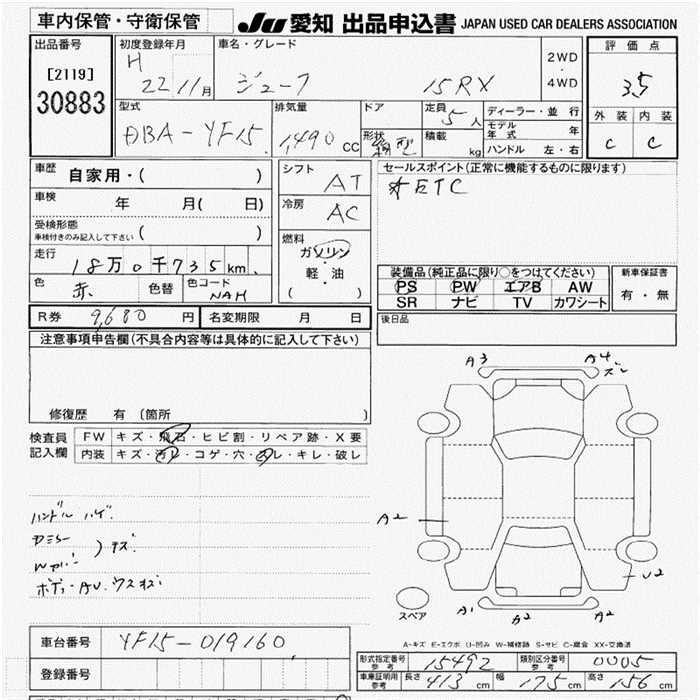 車内保管・守衛保管
JU 愛知 出品申込書 JAPAN USED CAR DEALERS ASSOCIATION
出品番号
[2119]
30883
初度登録年月
H
22 11月
車名・グレード
ジューク 15RX
2WD
・
4WD
評価点
3.5
外装 内装
C C
型式
DBA-YF15
排気量
1,490 CC
ドア
形状
箱型
定員
5人
積載
kg
ディーラー・並行
モデル年式 年
ハンドル 左・右
車歴
自家用・( )
車検
年 月( 日)
受検形態
車検付きのみ記入して下さい ( )
走行
18万0千735km.
色
赤
色替
色コード
NAH
シフト
AT
冷房
AC
燃料
ガソリン
軽・油
( )
セールスポイント(正常に機能するものに限ります)
ETC
装備品(純正品に限り○をつけてください)
PS PW エアB AW
SR ナビ TV カワシート
新車保証書
有・無
後日品
R券 9,680 円
名変期限 月 日
注意事項申告欄(不具合内容等は具体的に記入して下さい)
修復歴 有(箇所 )
検査員
記入欄
FW キズ・飛石・ヒビ割・リペア跡・X要
内装 キズ・汚レ・コゲ・穴・スレ・キレ・破レ
ハンドル ハゲ.
Wガバー
キズ.
A3
A4
ズレ
A2
U2
スペア
A1
A2
A2
A-キズ E-エクボ U-凹み W-補修跡 S-サビ C-腐食 XX-交換済
車台番号
YF15-019160
登録番号
形式指定番号
参考
15492
類別区分番号
参考
0005
車庫証明用
参考
長さ 413 cm
幅 175 cm
高さ 156 cm